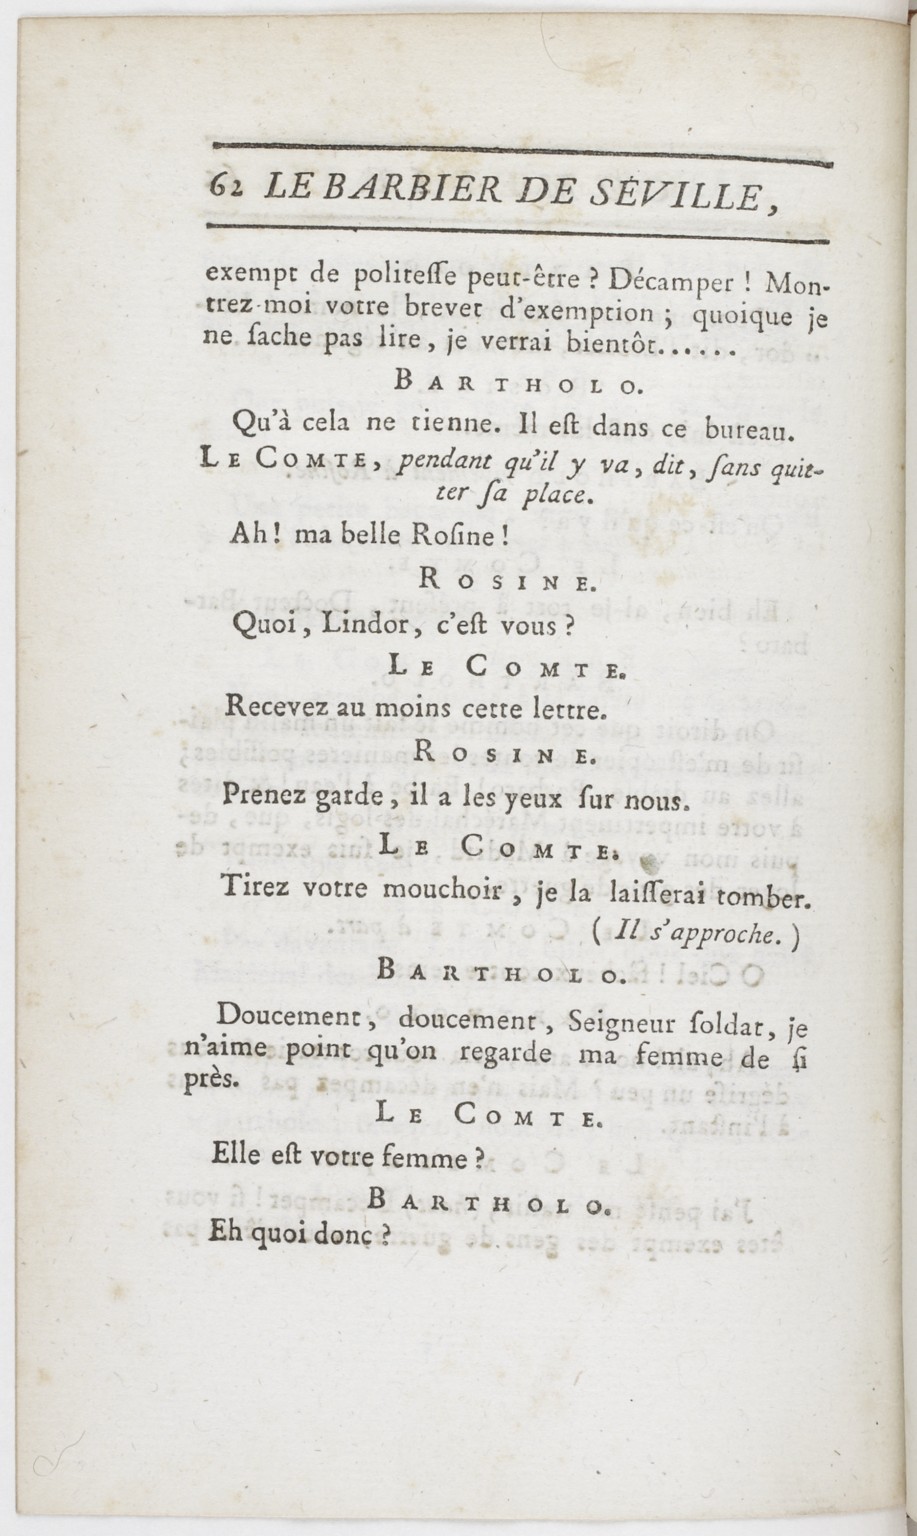 62 LE BARBIER DE SÉVILLE,
exempt de politeſſe peut-être ? Décamper ! Mon-
trez-moi votre brevet d'exemption ; quoique je
ne ſache pas lire, je verrai bientôt......
BARTHOLO.
Qu'à cela ne tienne. Il eſt dans ce bureau.
LE COMTE, pendant qu'il y va, dit, ſans quit-
ter ſa place.
Ah! ma belle Roſine !
ROSINE.
Quoi, Lindor, c'eſt vous ?
LE COMTE.
Recevez au moins cette lettre.
ROSINE.
Prenez garde, il a les yeux ſur nous.
LE COMTE.
Tirez votre mouchoir, je la laiſſerai tomber.
( Il s'approche. )
BARTHOLO.
Doucement, doucement, Seigneur ſoldat, je
n'aime point qu'on regarde ma femme de ſi
près.
LE COMTE.
Elle eſt votre femme ?
BARTHOLO.
Eh quoi donc ?